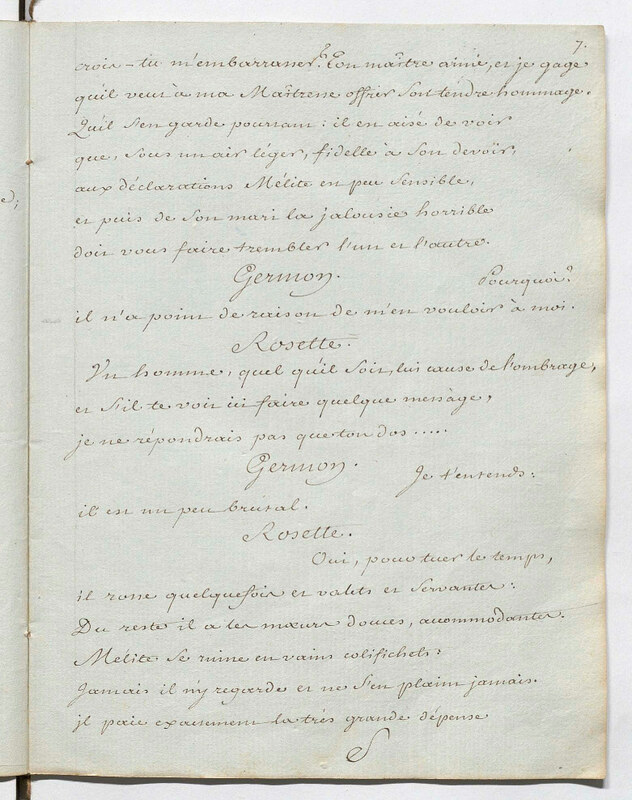 7.
crois-tu m'embarrasser? Ton maître aime, et je gage
qu'il veut à ma Maîtresse offrir son tendre hommage.
Qu'il s'en garde pourtant: il est aisé de voir
que, sous un air léger, fidelle à son devoir,
aux déclarations Mélite est peu sensible,
et puis de son mari la jalousie horrible
doit vous faire trembler l'un et l'autre.
Germon.
Pourquoi?
il n'a point de raison de m'en vouloir à moi.
Rosette.
Un homme, quel qu'il soit, lui cause de l'ombrage,
et s'il te voit ici faire quelque message,
je ne répondrais pas que ton dos.....
Germon.
Je t'entends:
il est un peu brutal.
Rosette.
Oui, pour tuer le temps,
il rosse quelquefois et valets et servantes:
Du reste il a les mœurs douces, accommodantes.
Mélite se ruine en vains colifichets:
Jamais il n'y regarde et ne s'en plaint jamais.
il paie exactement la très grande dépense